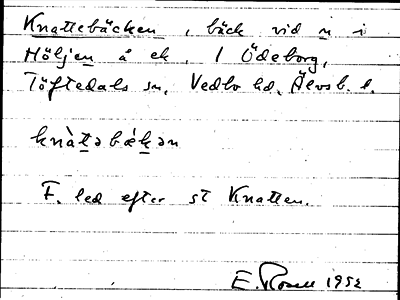 Knattebäcken, bäck vid n i
Höljen å ek. 1 Ödeborg,
Töftedals sn, Vedbo hd, Älvsb. l.
knàt̲ə bæ̀k̲ən
F. led efter st Knatten.
E. Rosell 1952